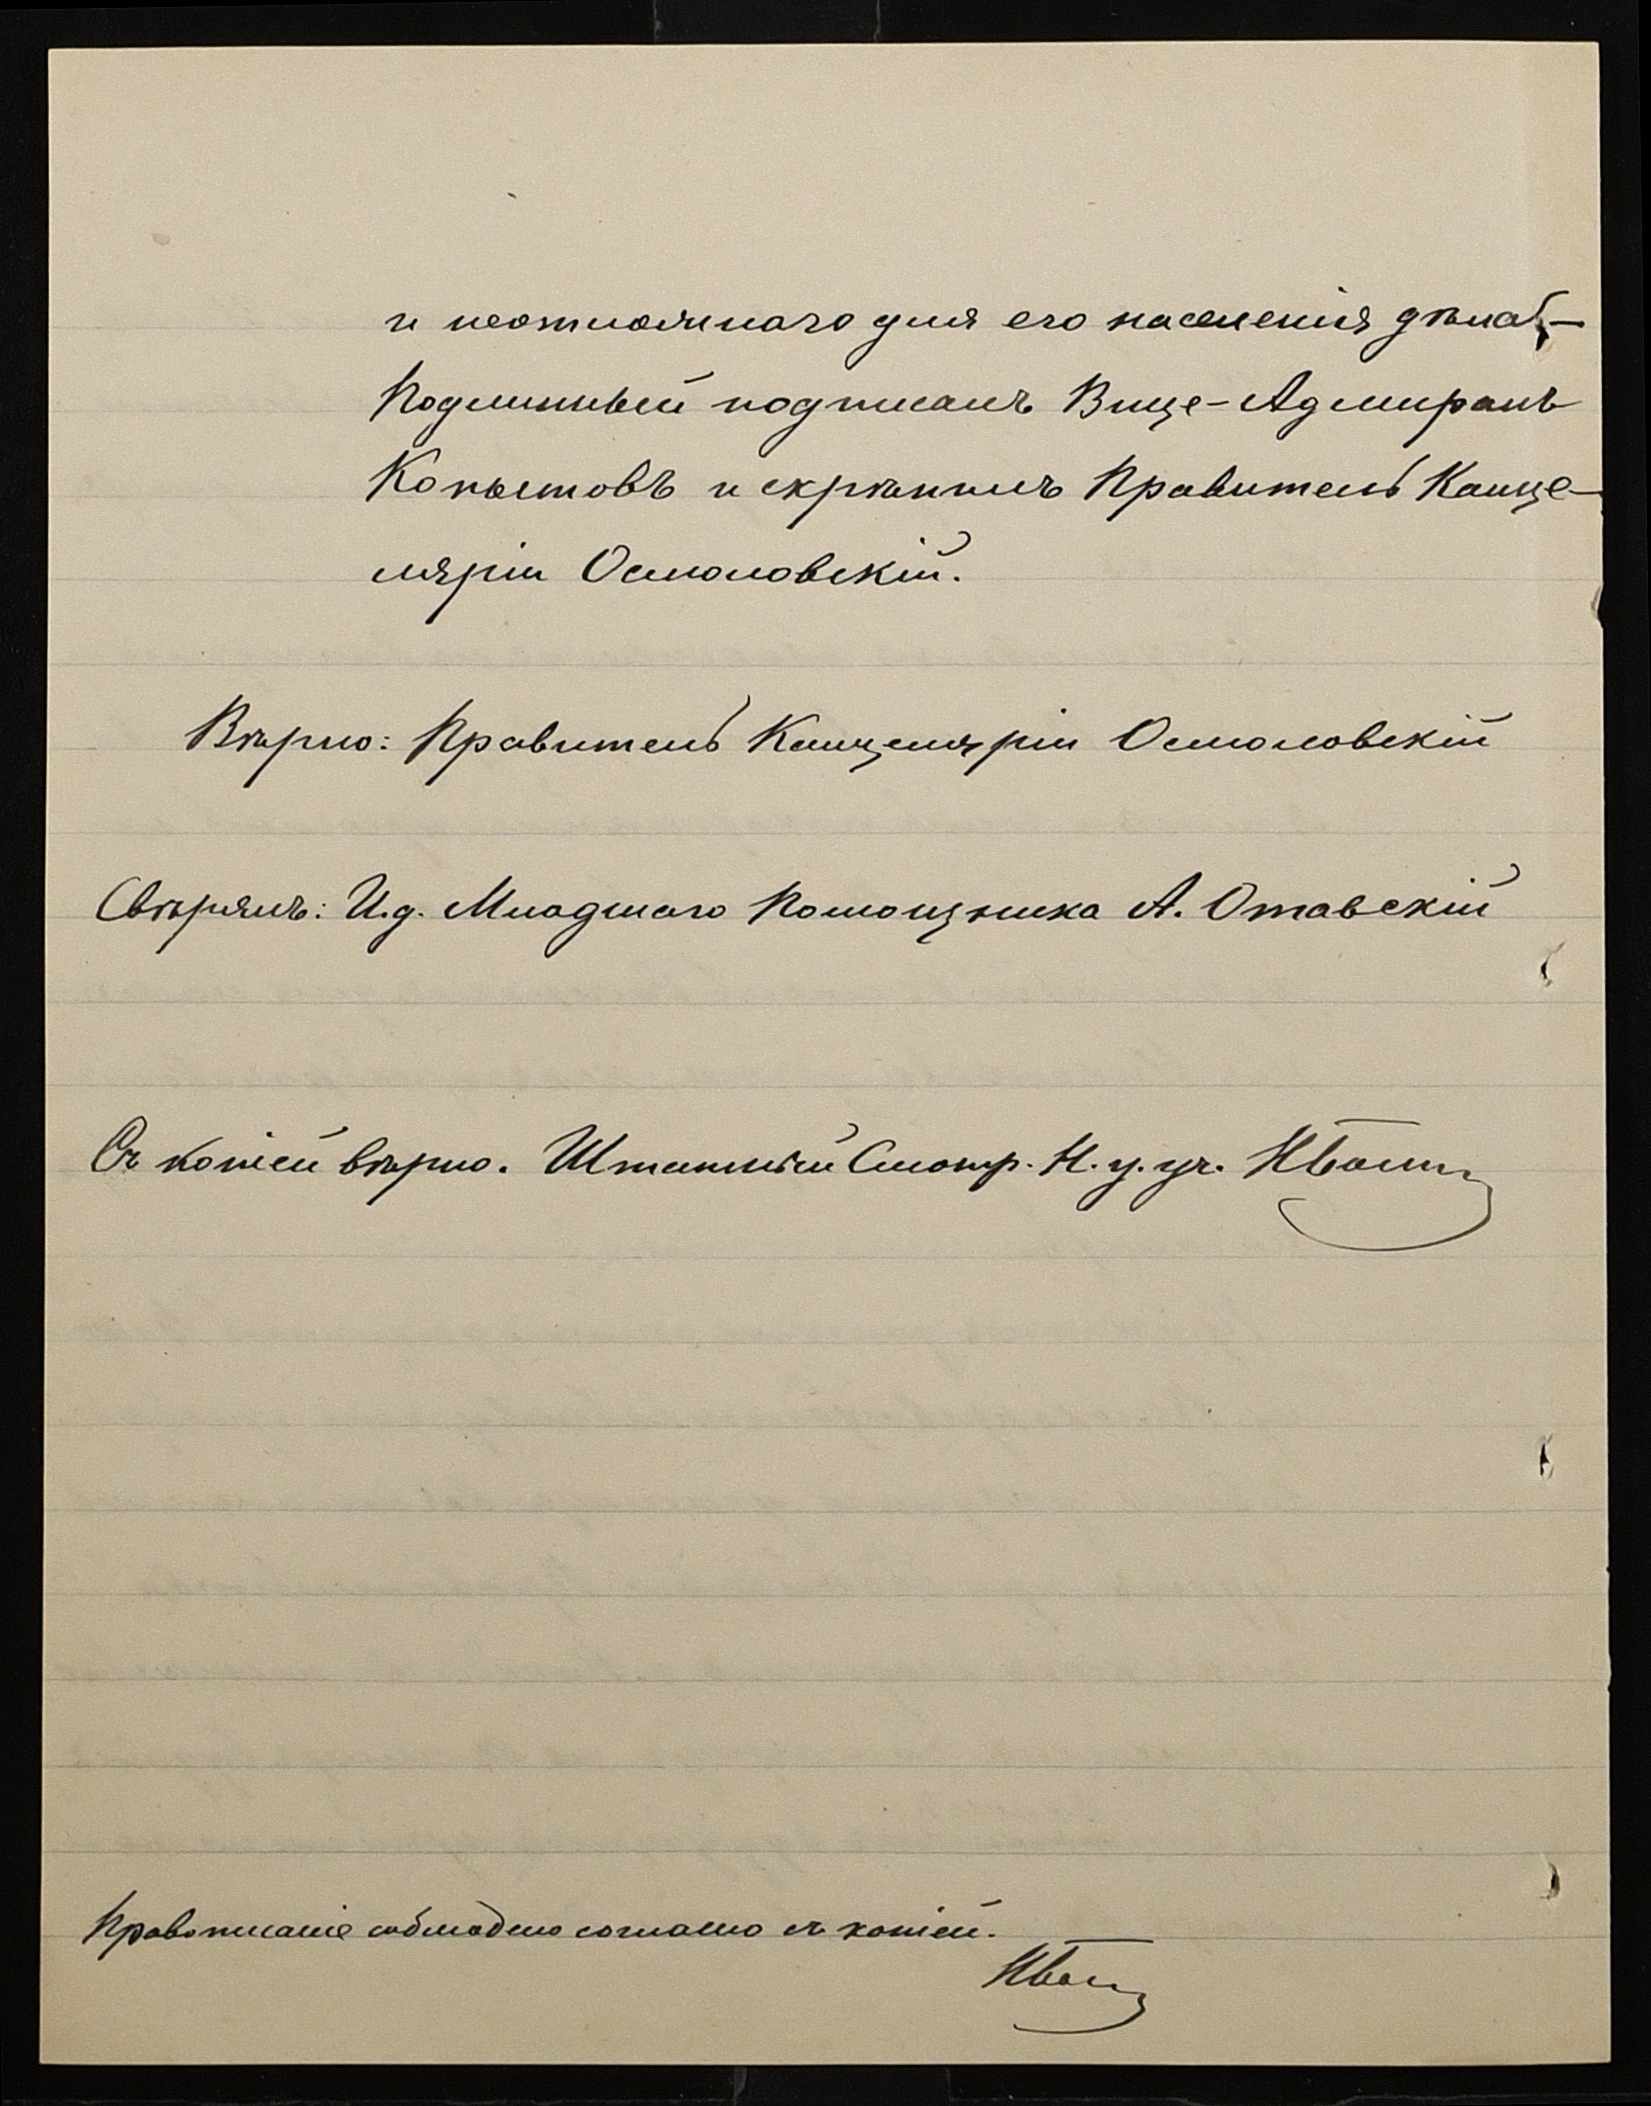 и неотложнаго для его населенія дѣла,—
Подлинный подписалъ Вице-Адмиралъ
Копытовъ и скрѣпилъ Правитель Канце-
ляріи Осмоловскій.
Вѣрно: Правитель Канцеляріи Осмоловскій
Свѣрялъ: И.д. Младшаго Помощника А. Отавскій
Съ копіей вѣрно. Штатный Смотр. Н. у. уч.
Правописаніе соблюдено согласно съ копіей.